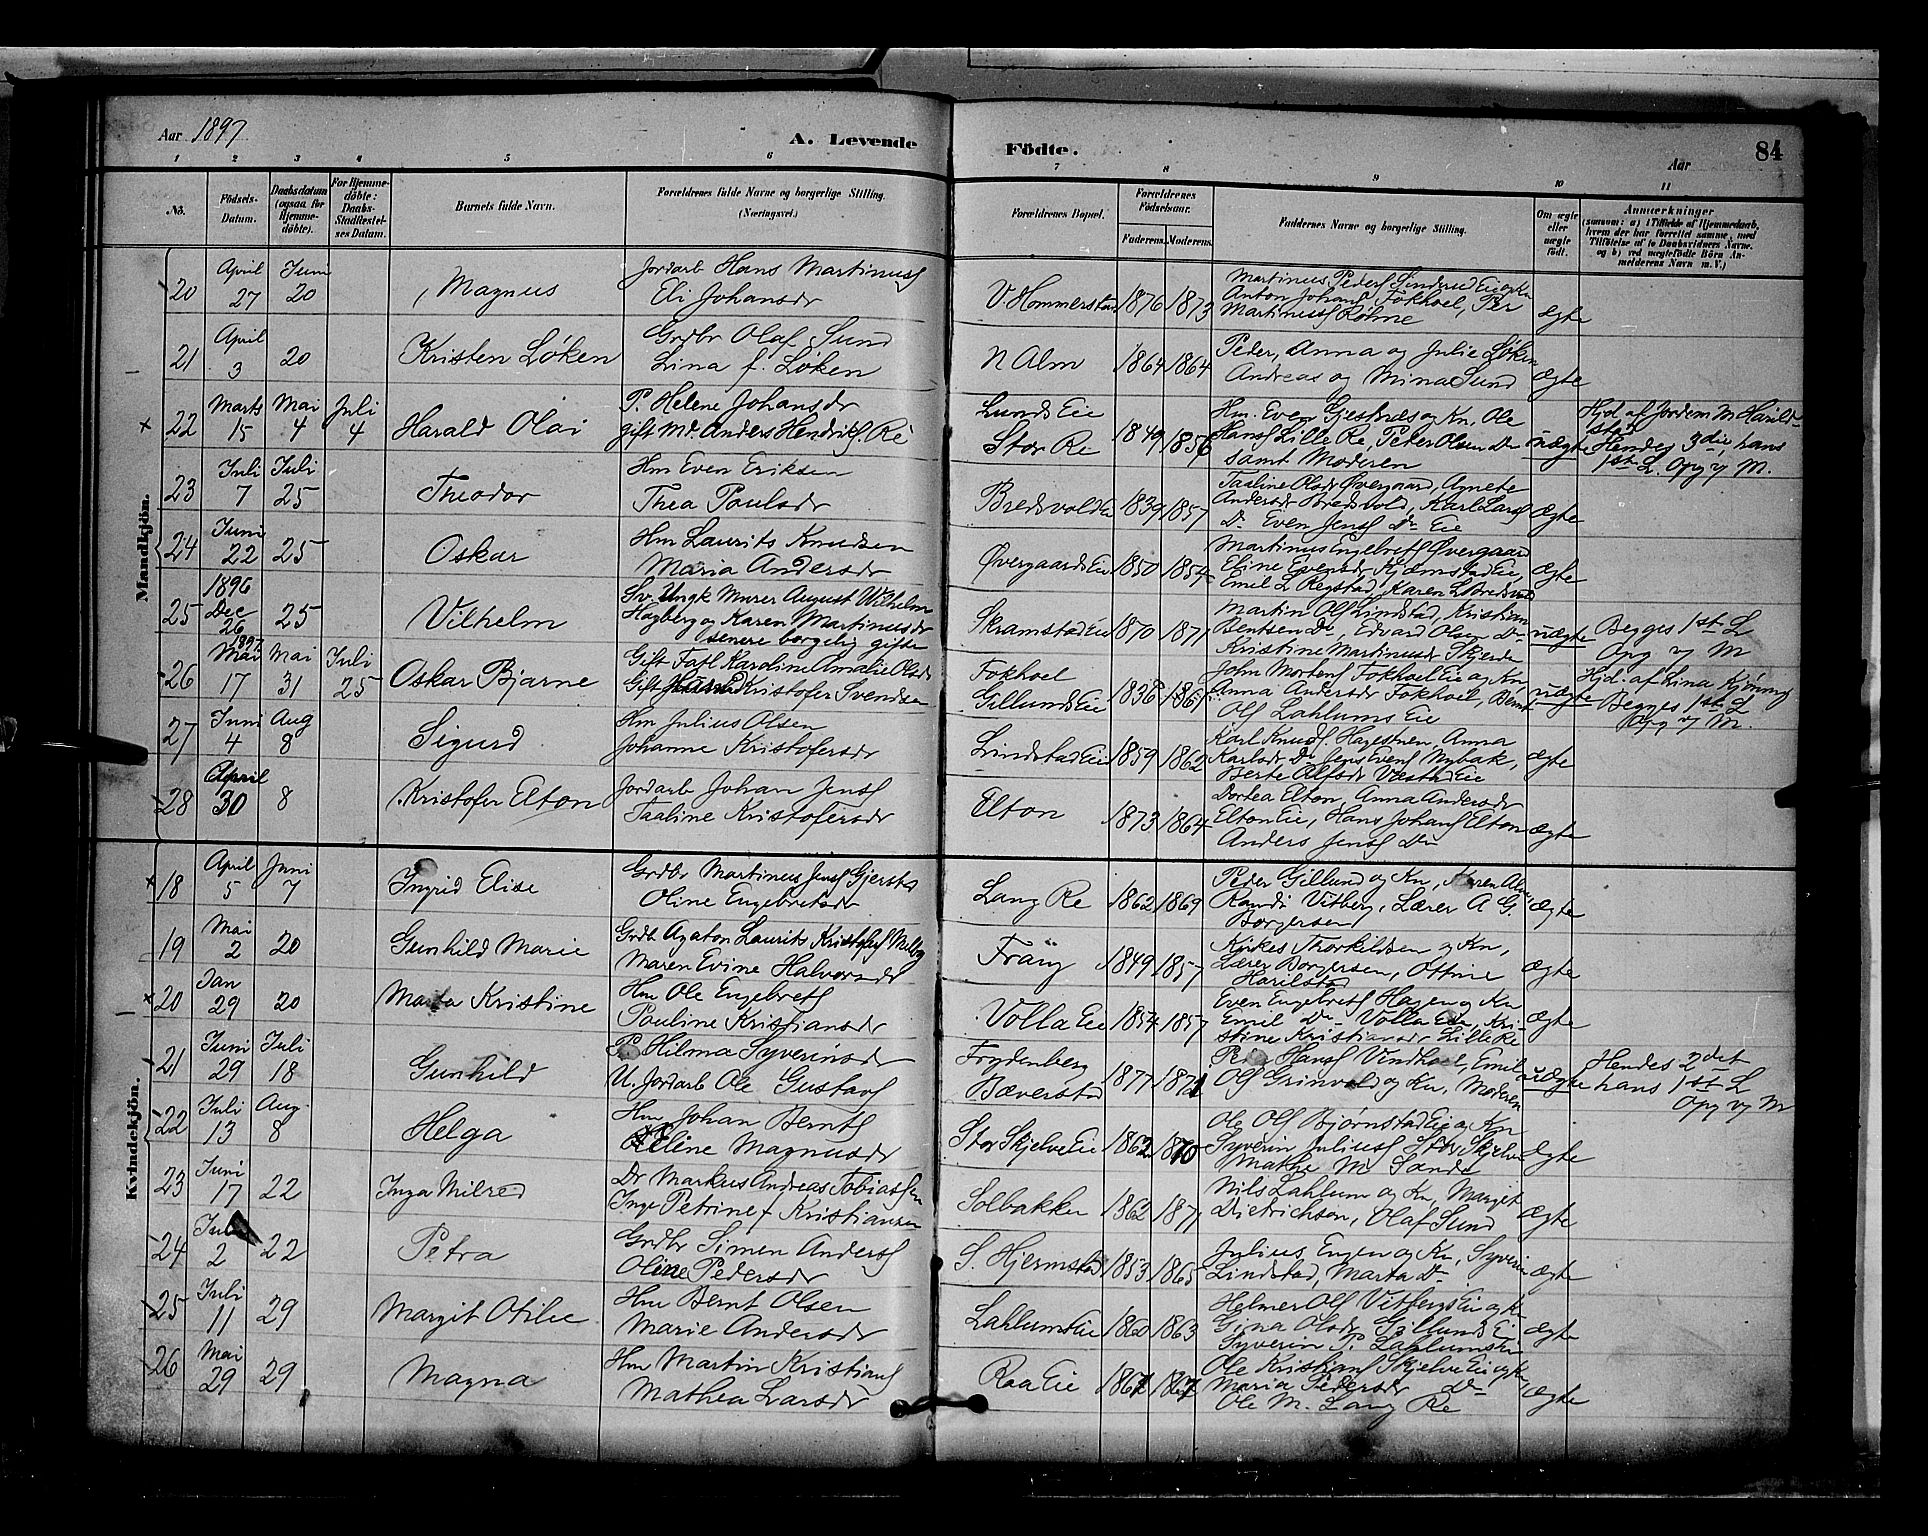 Aar 1897
A. Levende
Födte.
Aar
84
1 2 3 4 5 6 7 8 9 10 11
No.
Födsels-
Datum.
Daabsdatum
(ogsaa for
Hjemme-
döbte).
For Hjemme-
döbte:
Daabs-
Stadfæstel-
ses Datum.
Barnets fulde Navn.
Forældrenes fulde Navne og borgerlige Stilling.
(Næringsvei.)
Forældrenes Bopæl.
Forældrenes
Födselsaar.
Faderens.
Moderens.
Faddernes Navne og borgerlige Stilling.
Om ægte
eller
uægte
födt.
Anmærkninger
(saasom: a) i Tilfælde af Hjemmedaab,
hvem der har forrettet samme, med
Tilföielse af to Daabsvidners Navne.
og b) ved uægtefödte Börn An-
melderens Navn m. V.)
Mandkjön.
20 April 27 Juni 20 Magnus
Jordarb Hans Martinusf
Eli Johansdr
V. Hommerstad 1876 1873
Martinus Peders Sinderud Eie og Kn
Anton Johansf Fokhoel, Per
Martinusf Røhne
ægte
21 April 3 20 Kristen Løken
Grdbr Olaf Sund
Lina f. Løken
N Alm 1864 1864
Peder, Anna og Julie Løken
Andreas og Mina Sund
ægte
22 Marts 15 Mai 4 Juli 4 Harald Olai
P. Helene Johansdr
gift Md. Anders Hendriksf. Re
Lunds Eie
Stor Re
1849 1856
Hm. Even Gjestnæs og Kn, Ole
Hansf Lille Re, Peter Olsen Do
samt Moderen
uægte
Hjd. af Jordem M Harild-
stad
Hendes 3die, hans
1ste L. Opg v M.
23 Juli 7 Juli 25 Theodor
Hm Even Eriksen
Thea Paulsdr
Bredsvold Eie 1839 1857
Taaline Olsdr Øvergaard, Agnete
Andersdr Bredsvold, Karl Larsf
Do Even Jensf Do Eie
ægte
24 Juni 22 25 Oskar
Hm Laurits Knudsen
Maria Andersdr
Øvergaards Eie 1850 1854
Martinus Engebretsf Øvergaard
Eline Evensdr Kjæmstad Eie,
Emil L Regstad, Karen L Bredsvold
ægte
25 1896 Dec 26 25 Vilhelm
Sv. Ungk Murer August Wilhelm
Hagberg og Karen Martinusdr
senere borgelig gifte
Skramstad Eie 1870 1871
Martin Olf Lindstad, Kristian
Bentsen Do, Edvard Olsen Do
Kristine Martinusdr Skjerde
uægte
Begges 1ste L
Opg v M
26 1897 Mai 17 Mai 31 Juli 25 Oskar Bjarne
Gift Fafl Karoline Amalie Olsdr
Gift Kristofer Svendsen
Fokhoel
Gillunds Eie
1836 1861
John Mortensf Fokhoel Eie og Kn
Anna Andersdr Fokhoel, Bernt
Olf Lahlums Eie
uægte
Hjd. af Lina Kjønnig
Begges 1ste L
Opg v M.
27 Juni 4 Aug 8 Sigurd
Hm Julius Olsen
Johanne Kristofersdr
Lindstad Eie 1859 1862
Karl Knudsf. Hagestuen, Anna
Karlsdr Do, Jens Evensf Nybak,
Berte Alfsdr Væstad Eie
ægte
28 April 30 8 Kristofer Elton
Jordarb Johan Jensf
Taaline Kristofersdr
Elton 1873 1864
Dortea Elton, Anna Andersdr
Elton Eie, Hans Johansf Elton
Anders Jensf Do
ægte
Kvindekjön.
18 April 5 Juni 7 Ingrid Elise
Grdbr Martinus Jensf Gjerstad
Oline Engebretsdr
Lang Re 1862 1869
Peder Gillund og Kn, Karen Alm
Randi Vitberg, Lærer A G.
Borgersen
ægte
19 Mai 2 20 Gunhild Marie
Grdbr Agaton Laurits Kristofersf Melby
Maren Evine Halvorsdr
Frøng 1849 1857
Kirkes. Thorkildsen og Kn,
Lærer Borgersen, Ottine
Harilstad
ægte
20 Jan 29 20 Marta Kristine
Hm Ole Engebretsf
Pauline Kristiansdr
Volla Eie 1854 1857
Even Engebretsf Hagen og Kn
Emil Do Volla Eie, Kri-
stine Kristiansdr Lille Re
ægte
21 Juni 29 Juli 18 Gunhild
P. Hilma Syverinsdr
U. Jordarb Ole Gustavsf
Frydenberg
Bæverstad
1877 1871
Peder Hansf Vindhoel, Emil
Olf Grinvold og Kn, Moderen
uægte
Hendes 2det
hans 1ste L
Opg v M
22 Juli 13 Aug. 8 Helga
Hm Johan Berntsf
Eline Magnusdr
Stor Skjelve Eie 1862 1870
Ole Olf Bjørnstad Eie og Kn
Syverin Juliusf Stor Skjelve
Mathe M Sande
ægte
23 Juni 17 22 Inga Milred
Dr Markus Andreas Tobiassen
Inga Petrine f Kristiansen
Solbakken 1862 1871
Nils Lahlum og Kn, Margit
Dietrichson, Olaf Sund
ægte
24 Juli 2 22 Petra
Grdbr Simen Andersf
Oline Pedersdr
S. Hjermstad 1853 1865
Julius Engen og Kn, Syverin
Lindstad, Marta Do
ægte
25 Juli 11 29 Margit Otilie
Hm Bernt Olsen
Marie Andersdr
Lahlums Eie 1860 1863
Helmer Olf Vitbergs Eie og Kn
Gina Olsdr Gillunds Ei
Syverin P. Lahlumseie
ægte
26 Mai 29 29 Magna
Hm Martin Kristiansf
Mathea Larsdr
Raa Eie 1867 1867
Ole Kristiansf Skjelve Eie og Kn
Maria Pedersdr Do
Ole M. Lang Re
ægte